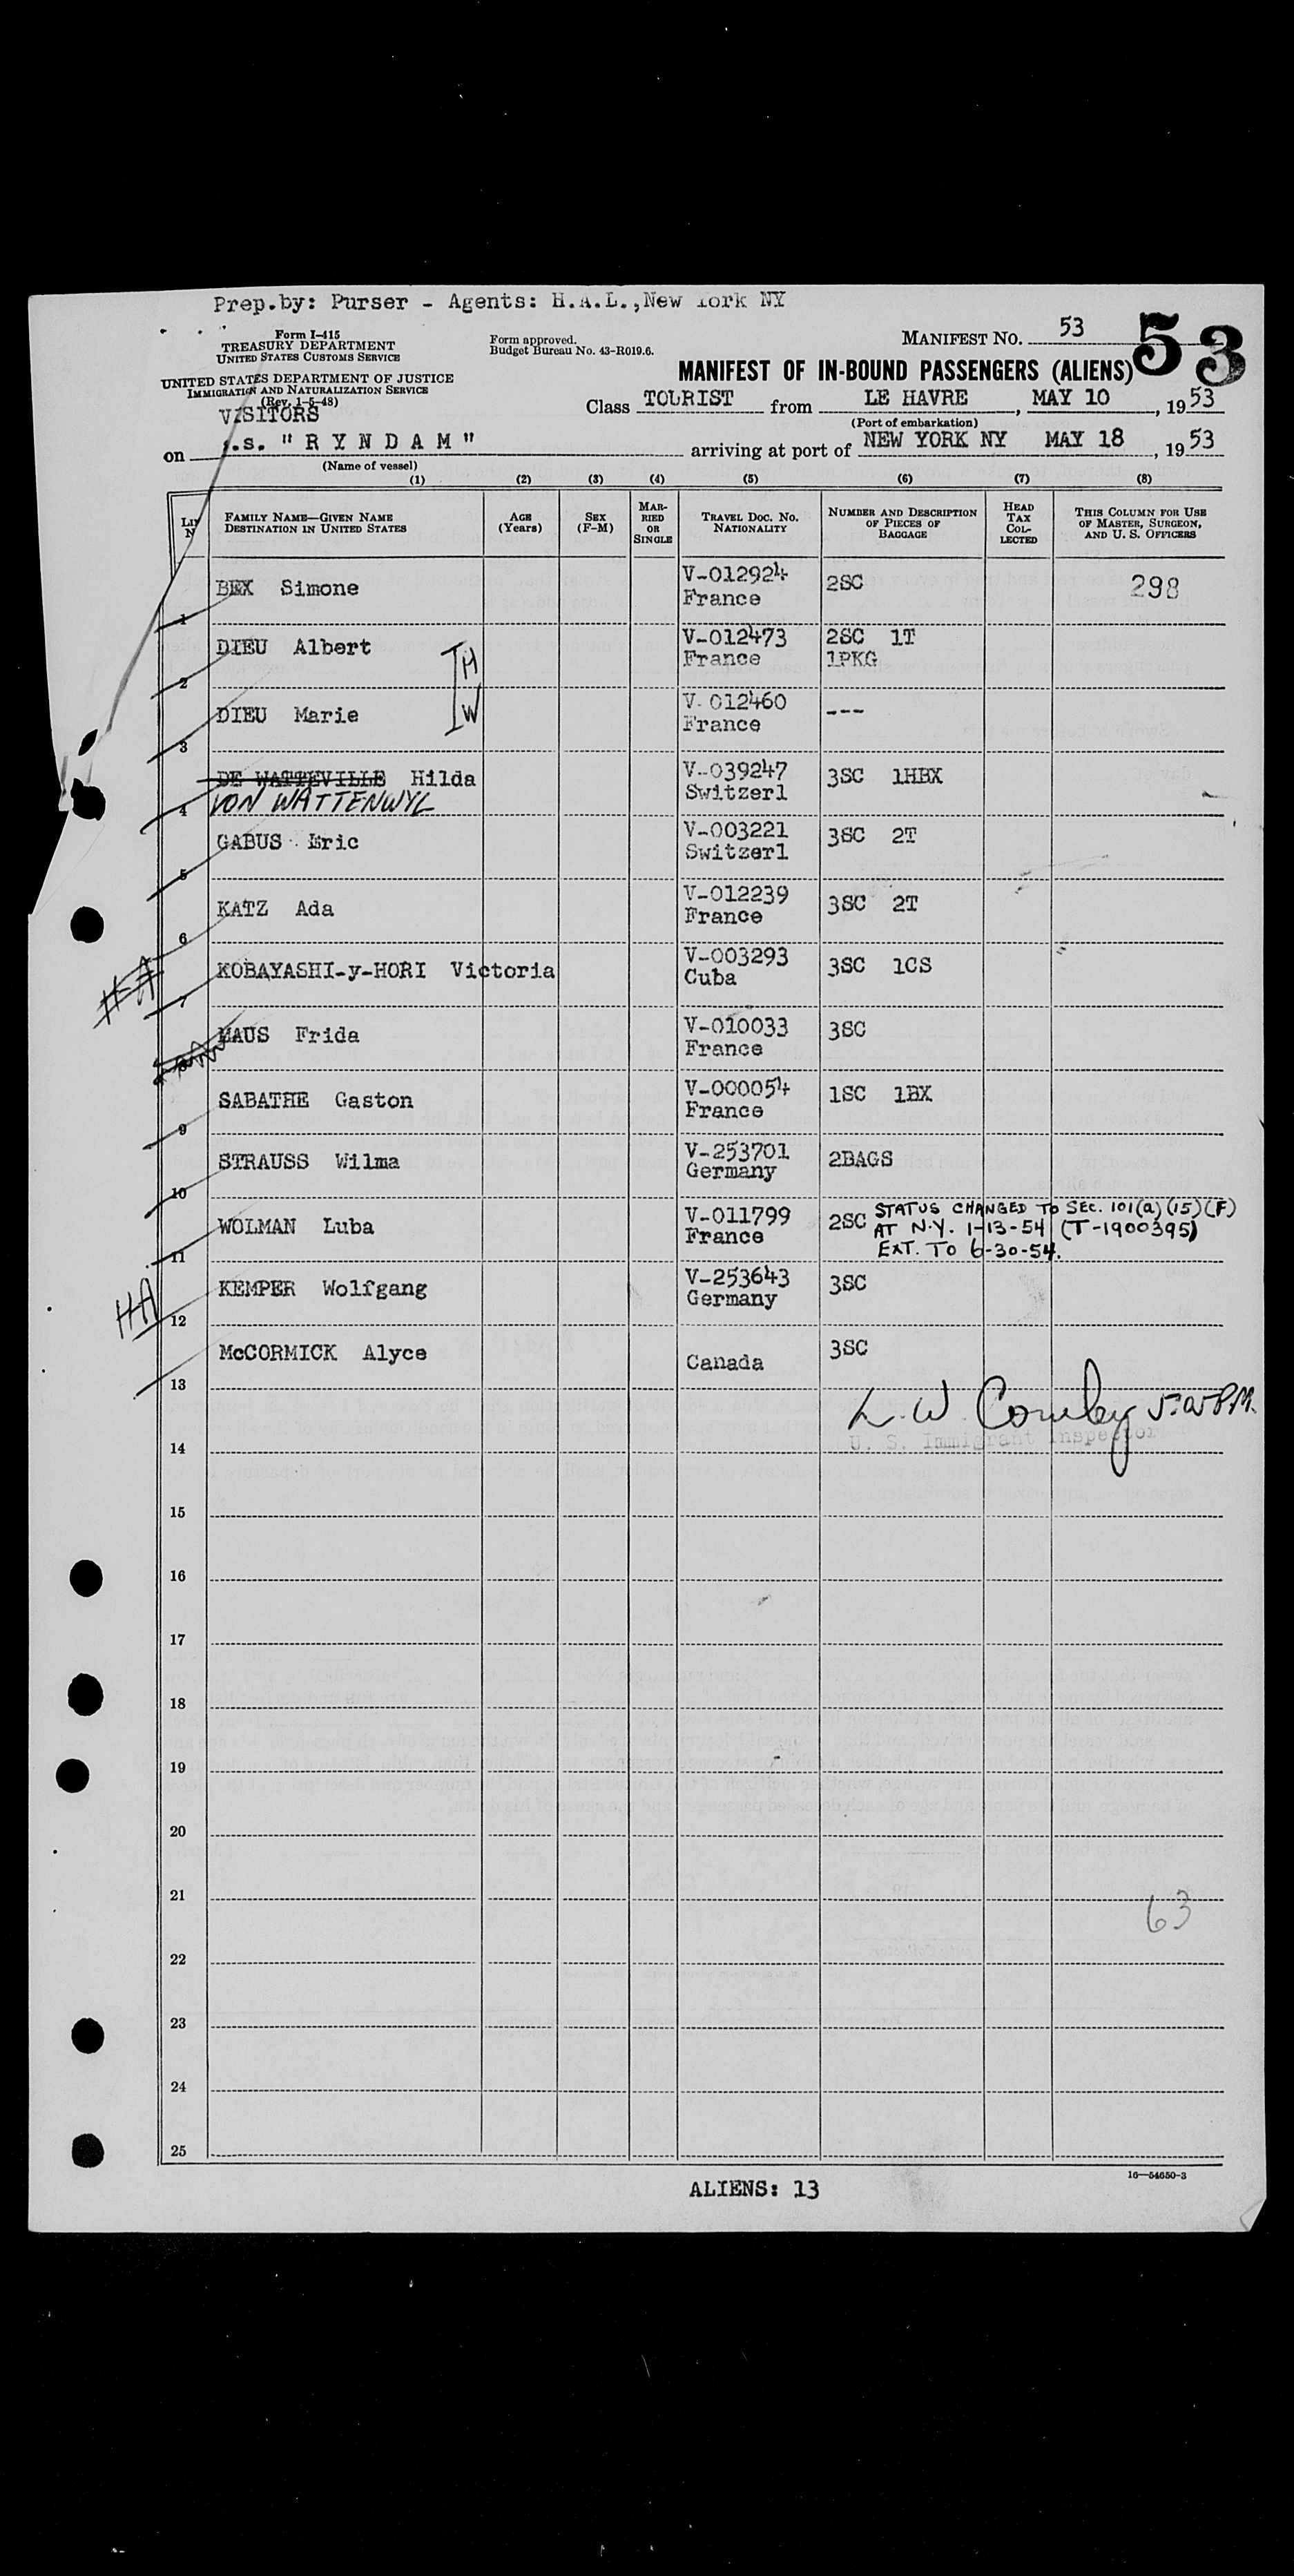 Prep.by: Purser - Agents: H.A.L.,New York NY
Form I-415
TREASURY DEPARTMENT
UNITED STATES CUSTOMS SERVICE
Form approved.
Budget Bureau No. 43-R019.6.
MANIFEST NO. 53
53
UNITED STATES DEPARTMENT OF JUSTICE
IMMIGRATION AND NATURALIZATION SERVICE
(Rev. 1-5-48)
VISITORS
MANIFEST OF IN-BOUND PASSENGERS (ALIENS)
Class TOURIST from LE HAVRE, MAY 10, 1953
(Port of embarkation)
on s.s. "RYNDAM" arriving at port of NEW YORK NY MAY 18, 1953
(Name of vessel)
(1) (2) (3) (4) (5) (6) (7) (8)
FAMILY NAME—GIVEN NAME
DESTINATION IN UNITED STATES
AGE
(Years)
SEX
(F-M)
MAR-
RIED
OR
SINGLE
TRAVEL DOC. NO.
NATIONALITY
NUMBER AND DESCRIPTION
OF PIECES OF
BAGGAGE
HEAD
TAX
COL-
LECTED
THIS COLUMN FOR USE
OF MASTER, SURGEON,
AND U. S. OFFICERS
1 BEX Simone V-012924 France 2SC 298
2 DIEU Albert H V-012473 France 2SC 1T 1PKG
3 DIEU Marie W V-012460 France ---
4 DE WATTEVILLE Hilda V-039247 Switzerl 3SC 1HBX
VON WATTENWYL
5 GABUS Eric V-003221 Switzerl 3SC 2T
6 KATZ Ada V-012239 France 3SC 2T
7 KOBAYASHI-y-HORI Victoria V-003293 Cuba 3SC 1CS
8 MAUS Frida V-010033 France 3SC
9 SABATHE Gaston V-000054 France 1SC 1BX
10 STRAUSS Wilma V-253701 Germany 2BAGS
11 WOLMAN Luba V-011799 France 2SC
STATUS CHANGED TO SEC. 101(a)(15)(F)
AT N.Y. 1-13-54 (T-1900395)
EXT. TO 6-30-54.
HA
12 KEMPER Wolfgang V-253643 Germany 3SC
13 McCORMICK Alyce Canada 3SC
L. W. 
U. S. Immigrant Inspector
14
15
16
17
18
19
20
21
63
22
23
24
25
16—54650-3
ALIENS: 13